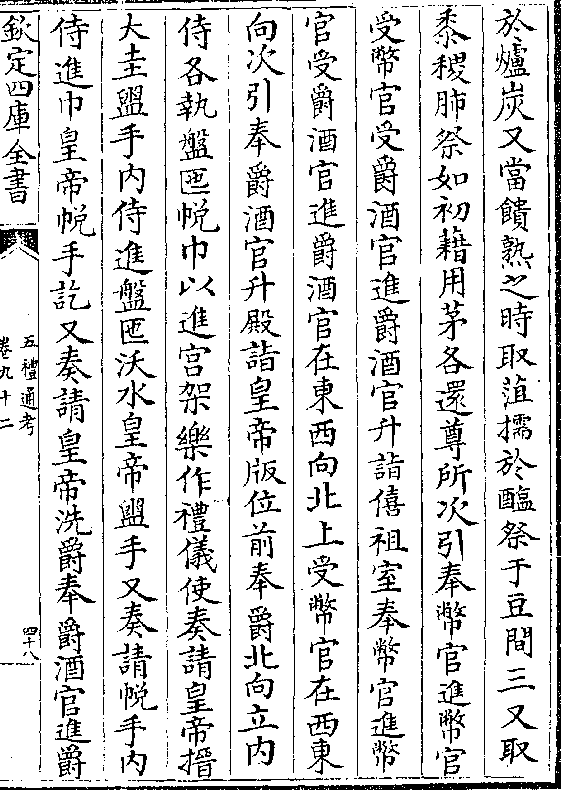 於爐炭又當饋熟之時取菹擩於醢祭于豆間三又取
黍稷肺祭如初藉用茅各還尊所次引奉幣官進幣官
受幣官受爵酒官進爵酒官升詣僖祖室奉幣官進幣
官受爵酒官進爵酒官在東西向北上受幣官在西東
向次引奉爵酒官升殿詣皇帝版位前奉爵北向立内
侍各執盤匜帨巾以進宫架樂作禮儀使奏請皇帝搢
大圭盥手内侍進盤匜沃水皇帝盥手又奏請帨手内
侍進巾皇帝帨手訖又奏請皇帝洗爵奉爵酒官進爵
欽定四庫全書
五禮通考
卷九十二
四十八